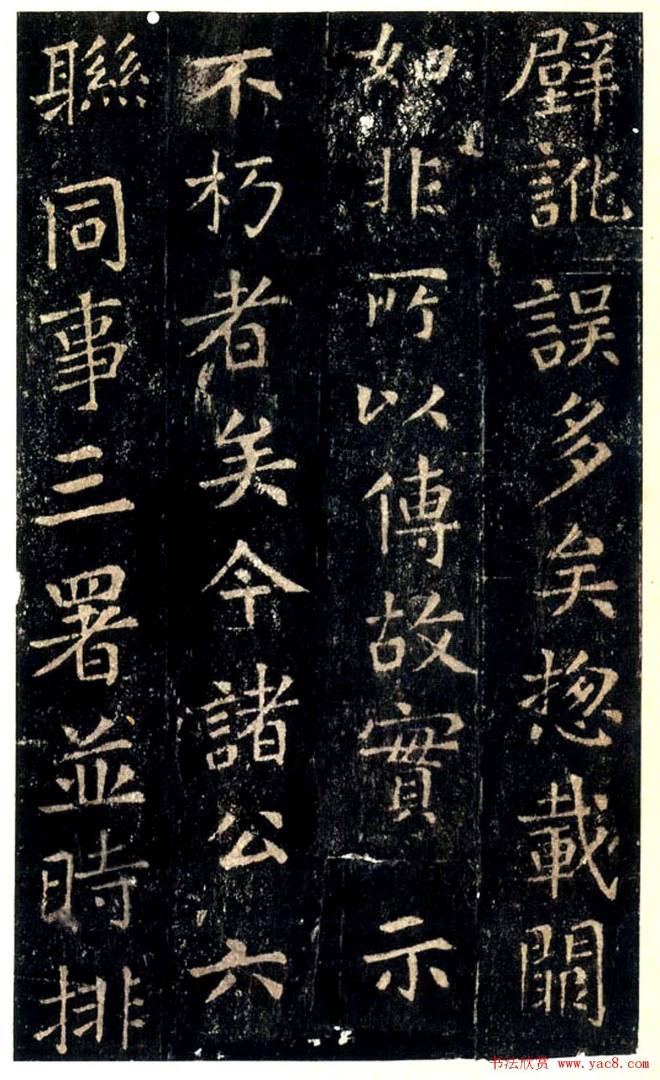 壁訛誤多矣揔載闕
如非所以傳故實示
不朽者矣今諸公六
聯同事三署並時排
书法欣赏 www.yac8.com